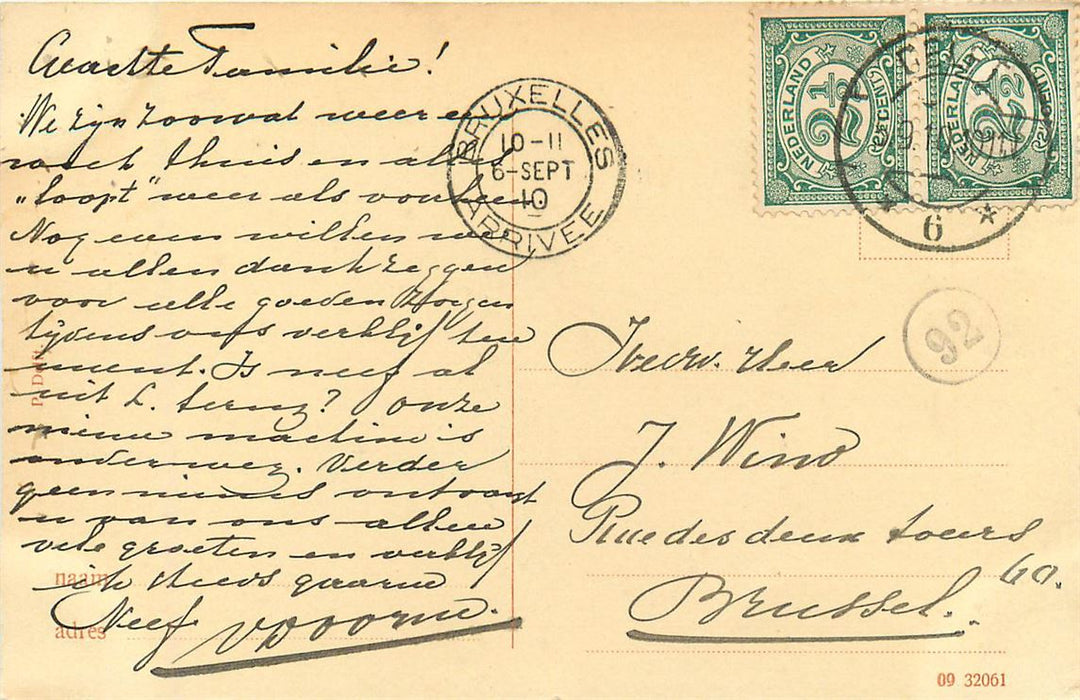 Geachte Familie!
We zijn zoowat weer
thuis en alles
"loopt" weer als voorheen
Nog even willen we
u allen dank zeggen
voor alle goeden zorgen
tijdens ons verblijf ten
uwent. Is neef al
uit L. terug? Onze
nieuwe machine is
onderweg. Verder
geen nieuws ontvangt
u van ons allen
vele groeten en verblijf
ik steeds gaarne
Neef
naam
adres
BRUXELLES
10-11
6-SEPT
10
ARRIVEE
NEDERLAND 2½ CENT
NEDERLAND 2½ CENT
6
92
Heer
J. Wind
Rue des deux tours
60.
Brussel.
09 32061